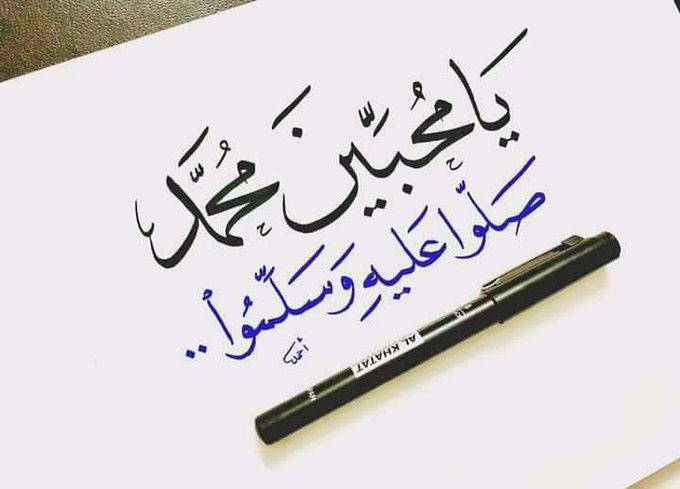 يَا مُحِبِّينَ مُحَمَّد
صَلّوا عَليهِ وَسَلِّمُوا..
AL KHATAT